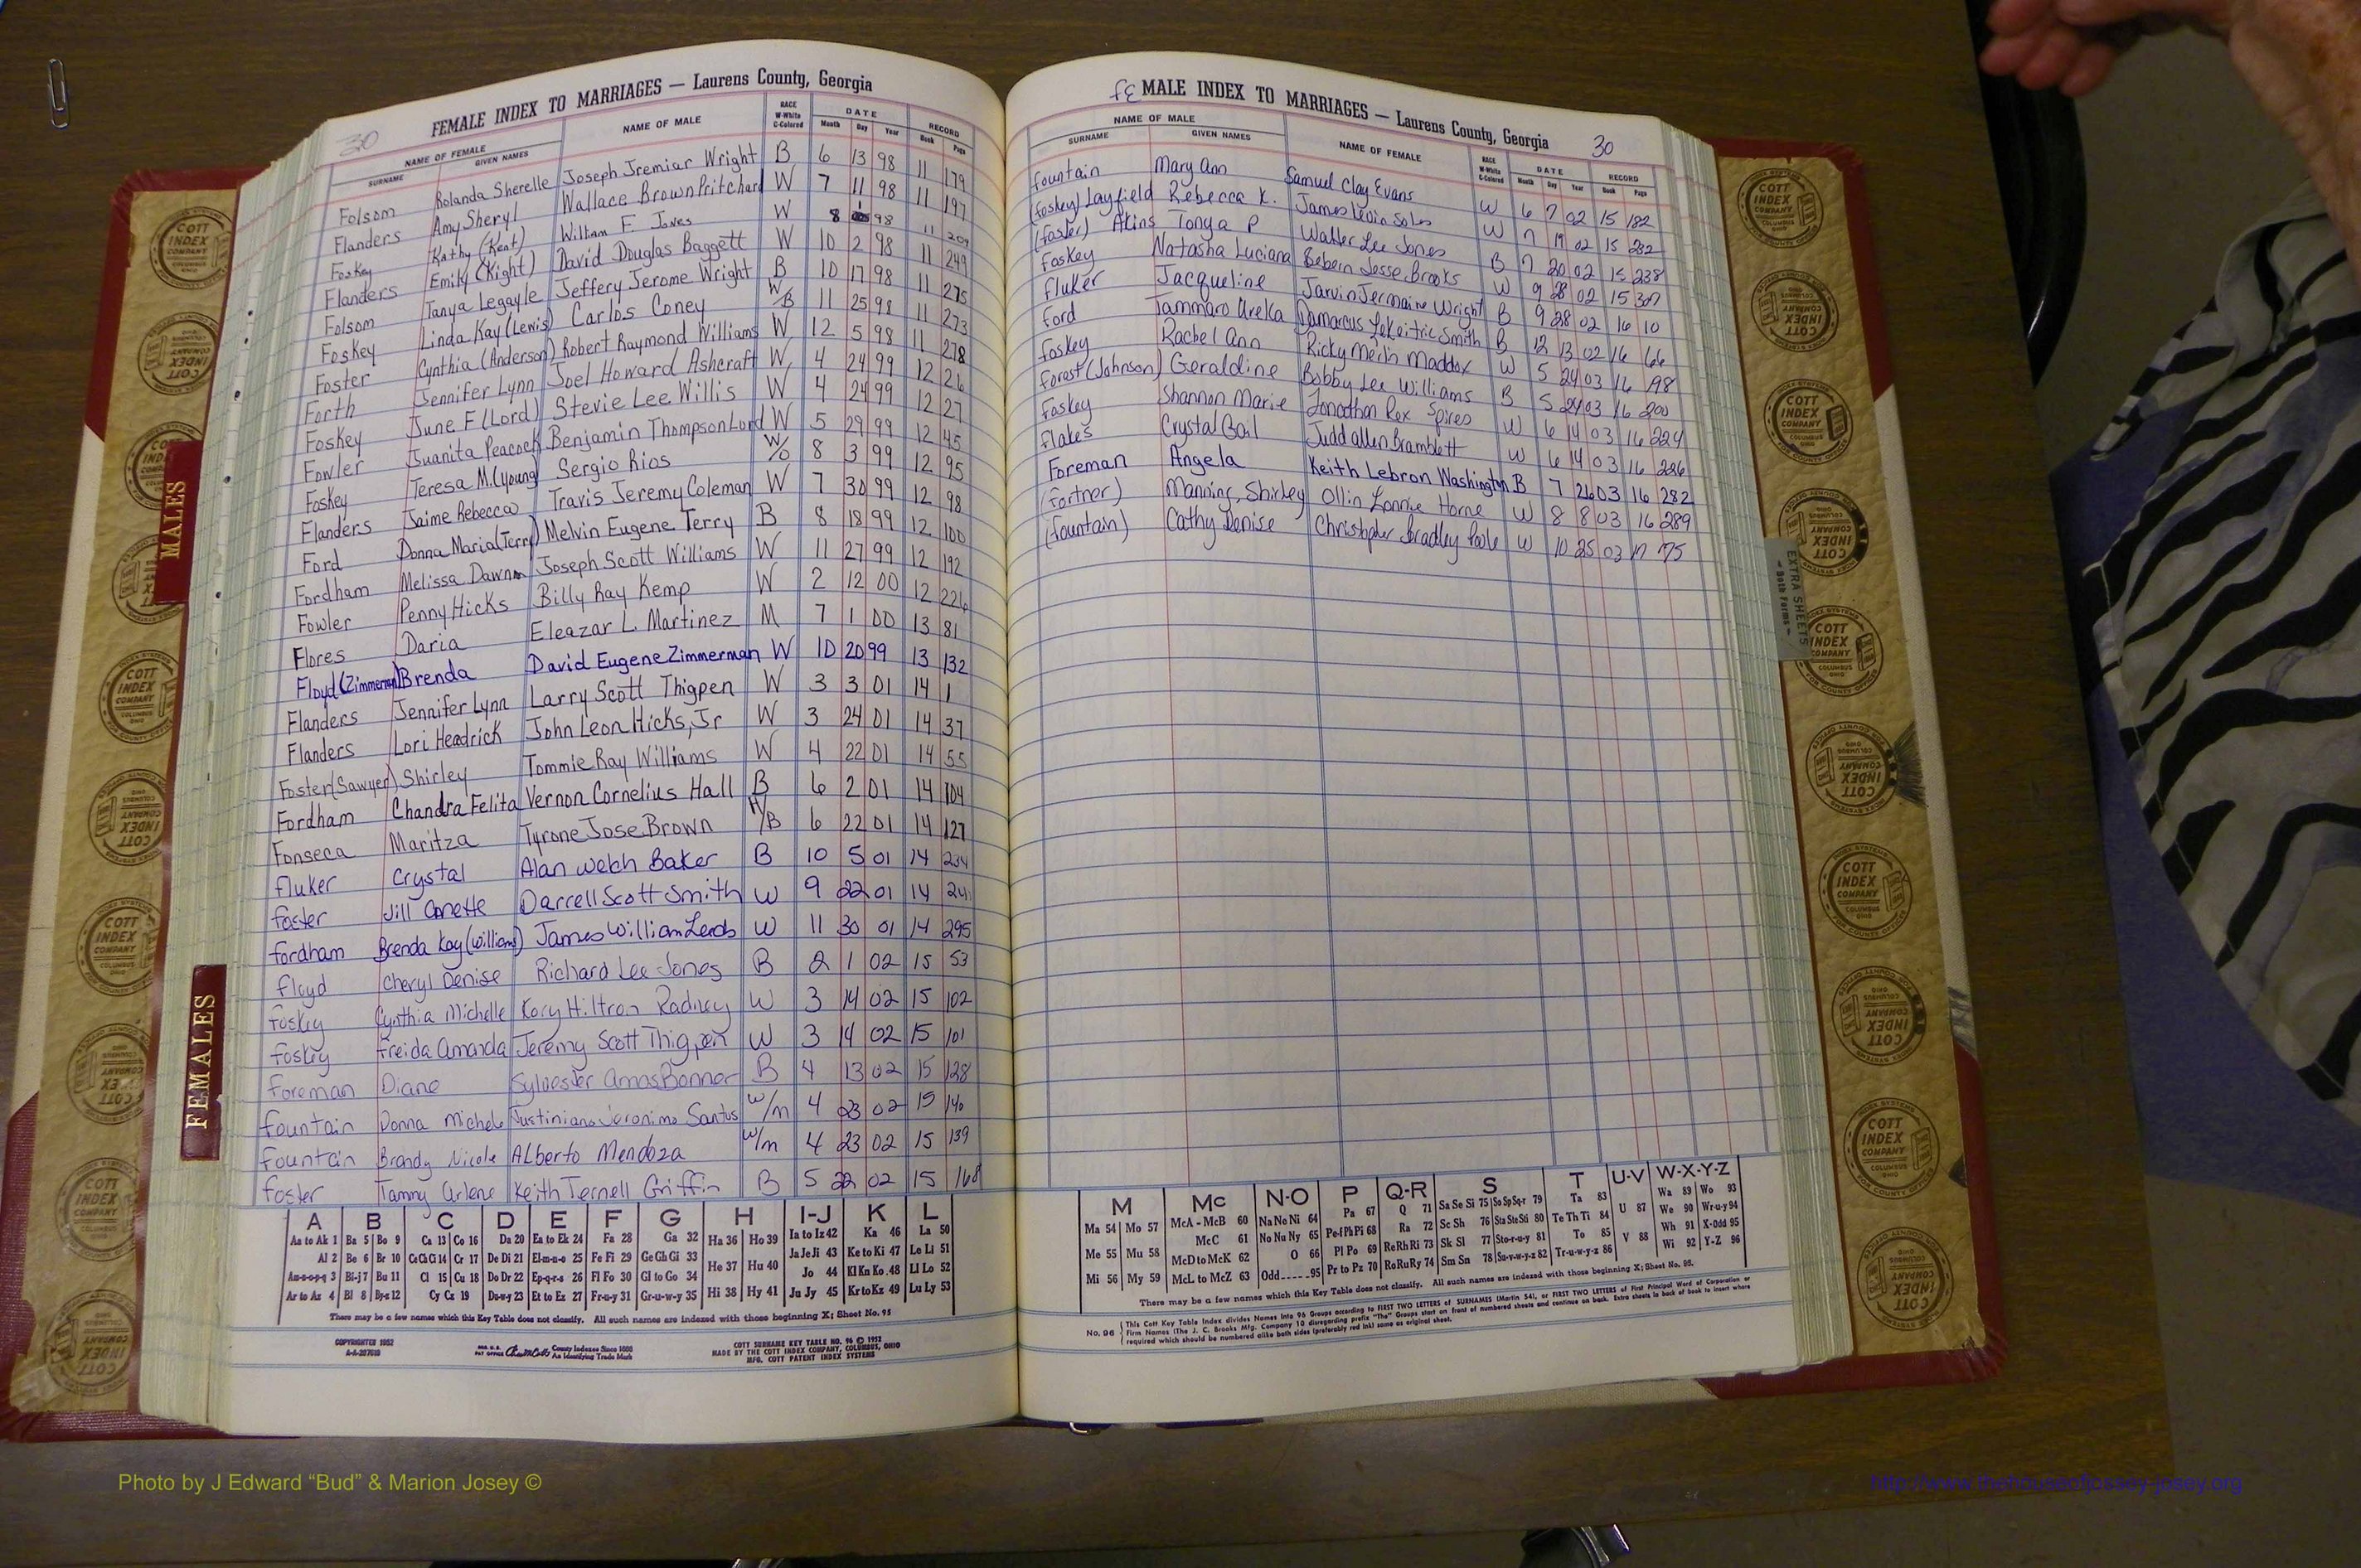 30
FEMALE INDEX TO MARRIAGES — Laurens County, Georgia
NAME OF FEMALE NAME OF MALE RACE W-White C-Colored DATE RECORD
SURNAME GIVEN NAMES Month Day Year Book Page
Folsom Rolanda Sherelle Joseph Jremiar Wright B 6 13 98 11 179
Flanders Amy Sheryl Wallace Brown Pritchard W 7 11 98 11 197
Foskey Kathy (Kent) William F. Jones W 8 98 11 209
Flanders Emily (Kight) David Douglas Baggett W 10 2 98 11 249
Folsom Tanya Legayle Jeffery Jerome Wright B 10 17 98 11 275
Foskey Linda Kay (Lewis) Carlos Coney W/B 11 25 98 11 273
Foster Cynthia (Anderson) Robert Raymond Williams W 12 5 98 11 278
Forth Jennifer Lynn Joel Howard Ashcraft W 4 24 99 12 26
Foskey June F (Lord) Stevie Lee Willis W 4 24 99 12 27
Fowler Juanita Peacock Benjamin Thompson Lord W 5 29 99 12 45
Foskey Teresa M. (Young) Sergio Rios W/O 8 3 99 12 95
Flanders Jaime Rebecca Travis Jeremy Coleman W 7 30 99 12 98
Ford Donna Maria (Terry) Melvin Eugene Terry B 8 18 99 12 100
Fordham Melissa Dawn Joseph Scott Williams W 11 27 99 12 192
Fowler Penny Hicks Billy Ray Kemp W 2 12 00 12 226
Flores Daria Eleazar L. Martinez M 7 1 00 13 81
Floyd (Zimmerman) Brenda David Eugene Zimmerman W 10 20 99 13 132
Flanders Jennifer Lynn Larry Scott Thigpen W 3 3 01 14 1
Flanders Lori Headrick John Leon Hicks, Jr W 3 24 01 14 37
Foster (Sawyer) Shirley Tommie Ray Williams W 4 22 01 14 55
Fordham Chandra Felita Vernon Cornelius Hall B 6 2 01 14 104
Fonseca Maritza Tyrone Jose Brown H/B 6 22 01 14 127
Fluker Crystal Alan Welch Baker B 10 5 01 14 234
Foster Jill Anette Darrell Scott Smith W 9 22 01 14 241
Fordham Brenda Kay (Williams) James William W 11 30 01 14 295
Floyd Cheryl Denise Richard Lee Jones B 2 1 02 15 53
Foskey Cynthia Michelle Kory Hiltron Radney W 3 14 02 15 102
Foskey Freida Amanda Jeremy Scott Thigpen W 3 14 02 15 101
Foreman Diane Sylvester Amos Bonner B 4 13 02 15 128
Fountain Donna Michele Justiniano Jeronimo Santos W/m 4 23 02 15 140
Fountain Brandy Nicole Alberto Mendoza W/m 4 23 02 15 139
Foster Tammy Arlene Keith Ternell Griffin B 5 22 02 15 168
A B C D E F G H I-J K L
Aa to Ak 1 Ba 5 Bo 9 Ca 13 Co 16 Da 20 Ea to Ek 24 Fa 28 Ga 32 Ha 36 Ho 39 Ia to Iz 42 Ka 46 La 50
Al 2 Be 6 Br 10 Ce Ch Ci 14 Cr 17 De Di 21 El-m-n-o 25 Fe Fi 29 Ge Gh Gi 33 He 37 Hu 40 Ja Je Ji 43 Ke to Ki 47 Le Li 51
Am-n-o-p-q 3 Bi-j 7 Bu 11 Cl 15 Cu 18 Do Dr 22 Ep-q-r-s 26 Fl Fo 30 Gl to Go 34 Jo 44 Kl Kn Ko 48 Ll Lo 52
Ar to Az 4 Bl 8 By-z 12 Cy Cz 19 Du-w-y 23 Et to Ez 27 Fr-u-y 31 Gr-u-w-y 35 Hi 38 Hy 41 Ju Jy 45 Kr to Kz 49 Lu Ly 53
There may be a few names which this Key Table does not classify. All such names are indexed with those beginning X; Sheet No. 95
COPYRIGHTED 1952
A-A-207610
County Indexes Since 1888
An Identifying Trade Mark
COTT SURNAME KEY TABLE NO. 96 © 1952
MADE BY THE COTT INDEX COMPANY, COLUMBUS, OHIO
MFG. COTT PATENT INDEX SYSTEMS
FE MALE INDEX TO MARRIAGES — Laurens County, Georgia 30
NAME OF MALE NAME OF FEMALE RACE W-White C-Colored DATE RECORD
SURNAME GIVEN NAMES Month Day Year Book Page
Fountain Mary Ann Samuel Clay Evans W 6 7 02 15 182
(Foskey) Layfield Rebecca K. James Levin Soles W 7 19 02 15 232
(Foster) Akins Tonya P Walter Lee Jones B 7 20 02 15 238
Foskey Natasha Luciana Jesse Brooks W 9 28 02 15 307
Fluker Jacqueline Jarvin Jermaine Wright B 9 28 02 16 10
Ford Tammara Ureka Damarcus Smith B 12 13 02 16 66
Foskey Rachel Ann Ricky Maddox W 5 24 03 16 198
Forest (Johnson) Geraldine Bobby Lee Williams B 5 24 03 16 200
Foskey Shannon Marie Jonathan Rex Spires W 6 14 03 16 224
Flakes Crystal Gail Judd Allen Bramblett W 6 14 03 16 226
Foreman Angela Keith Lebron Washington B 7 26 03 16 282
(Fortner) Manning, Shirley Ollin Lonnie Horne W 8 8 03 16 289
(Fountain) Cathy Denise Christopher Bradley Poole W 10 25 03 17 75
M Mc N-O P Q-R S T U-V W-X-Y-Z
Ma 54 Mo 57 McA - McB 60 Na Ne Ni 64 Pa 67 Q 71 Sa Se Si 75 So Sp Sq-r 79 Ta 83 U 87 Wa 89 Wo 93
Me 55 Mu 58 McC 61 No Nu Ny 65 Pe-f Ph Pi 68 Ra 72 Sc Sh 76 Sta Ste Sti 80 Te Th Ti 84 We 90 Wr-u-y 94
McD to McK 62 O 66 Pl Po 69 Re Rh Ri 73 Sk Sl 77 Sto-r-u-y 81 To 85 V 88 Wh 91 X-Odd 95
Mi 56 My 59 McL to McZ 63 Odd 95 Pr to Pz 70 Ro Ru Ry 74 Sm Sn 78 Su-v-w-y-z 82 Tr-u-w-y-z 86 Wi 92 Y-Z 96
There may be a few names which this Key Table does not classify. All such names are indexed with those beginning X; Sheet No. 95.
No. 96 This Cott Key Table Index divides Names into 96 Groups according to FIRST TWO LETTERS of SURNAMES (Martin 54), or FIRST TWO LETTERS of First Principal Word of Corporation or
Firm Names (The J. C. Brooks Mfg. Company 10 disregarding prefix "The" Groups start on front of numbered sheets and continue on back. Extra sheets in back of book to insert where
required which should be numbered alike both sides (preferably red ink) same as original sheet.
MALES
FEMALES
EXTRA SHEETS
- Both Forms -
COTT INDEX COMPANY COLUMBUS OHIO
Photo by J Edward “Bud” & Marion Josey ©
http://www.thehouseofjossey-josey.org